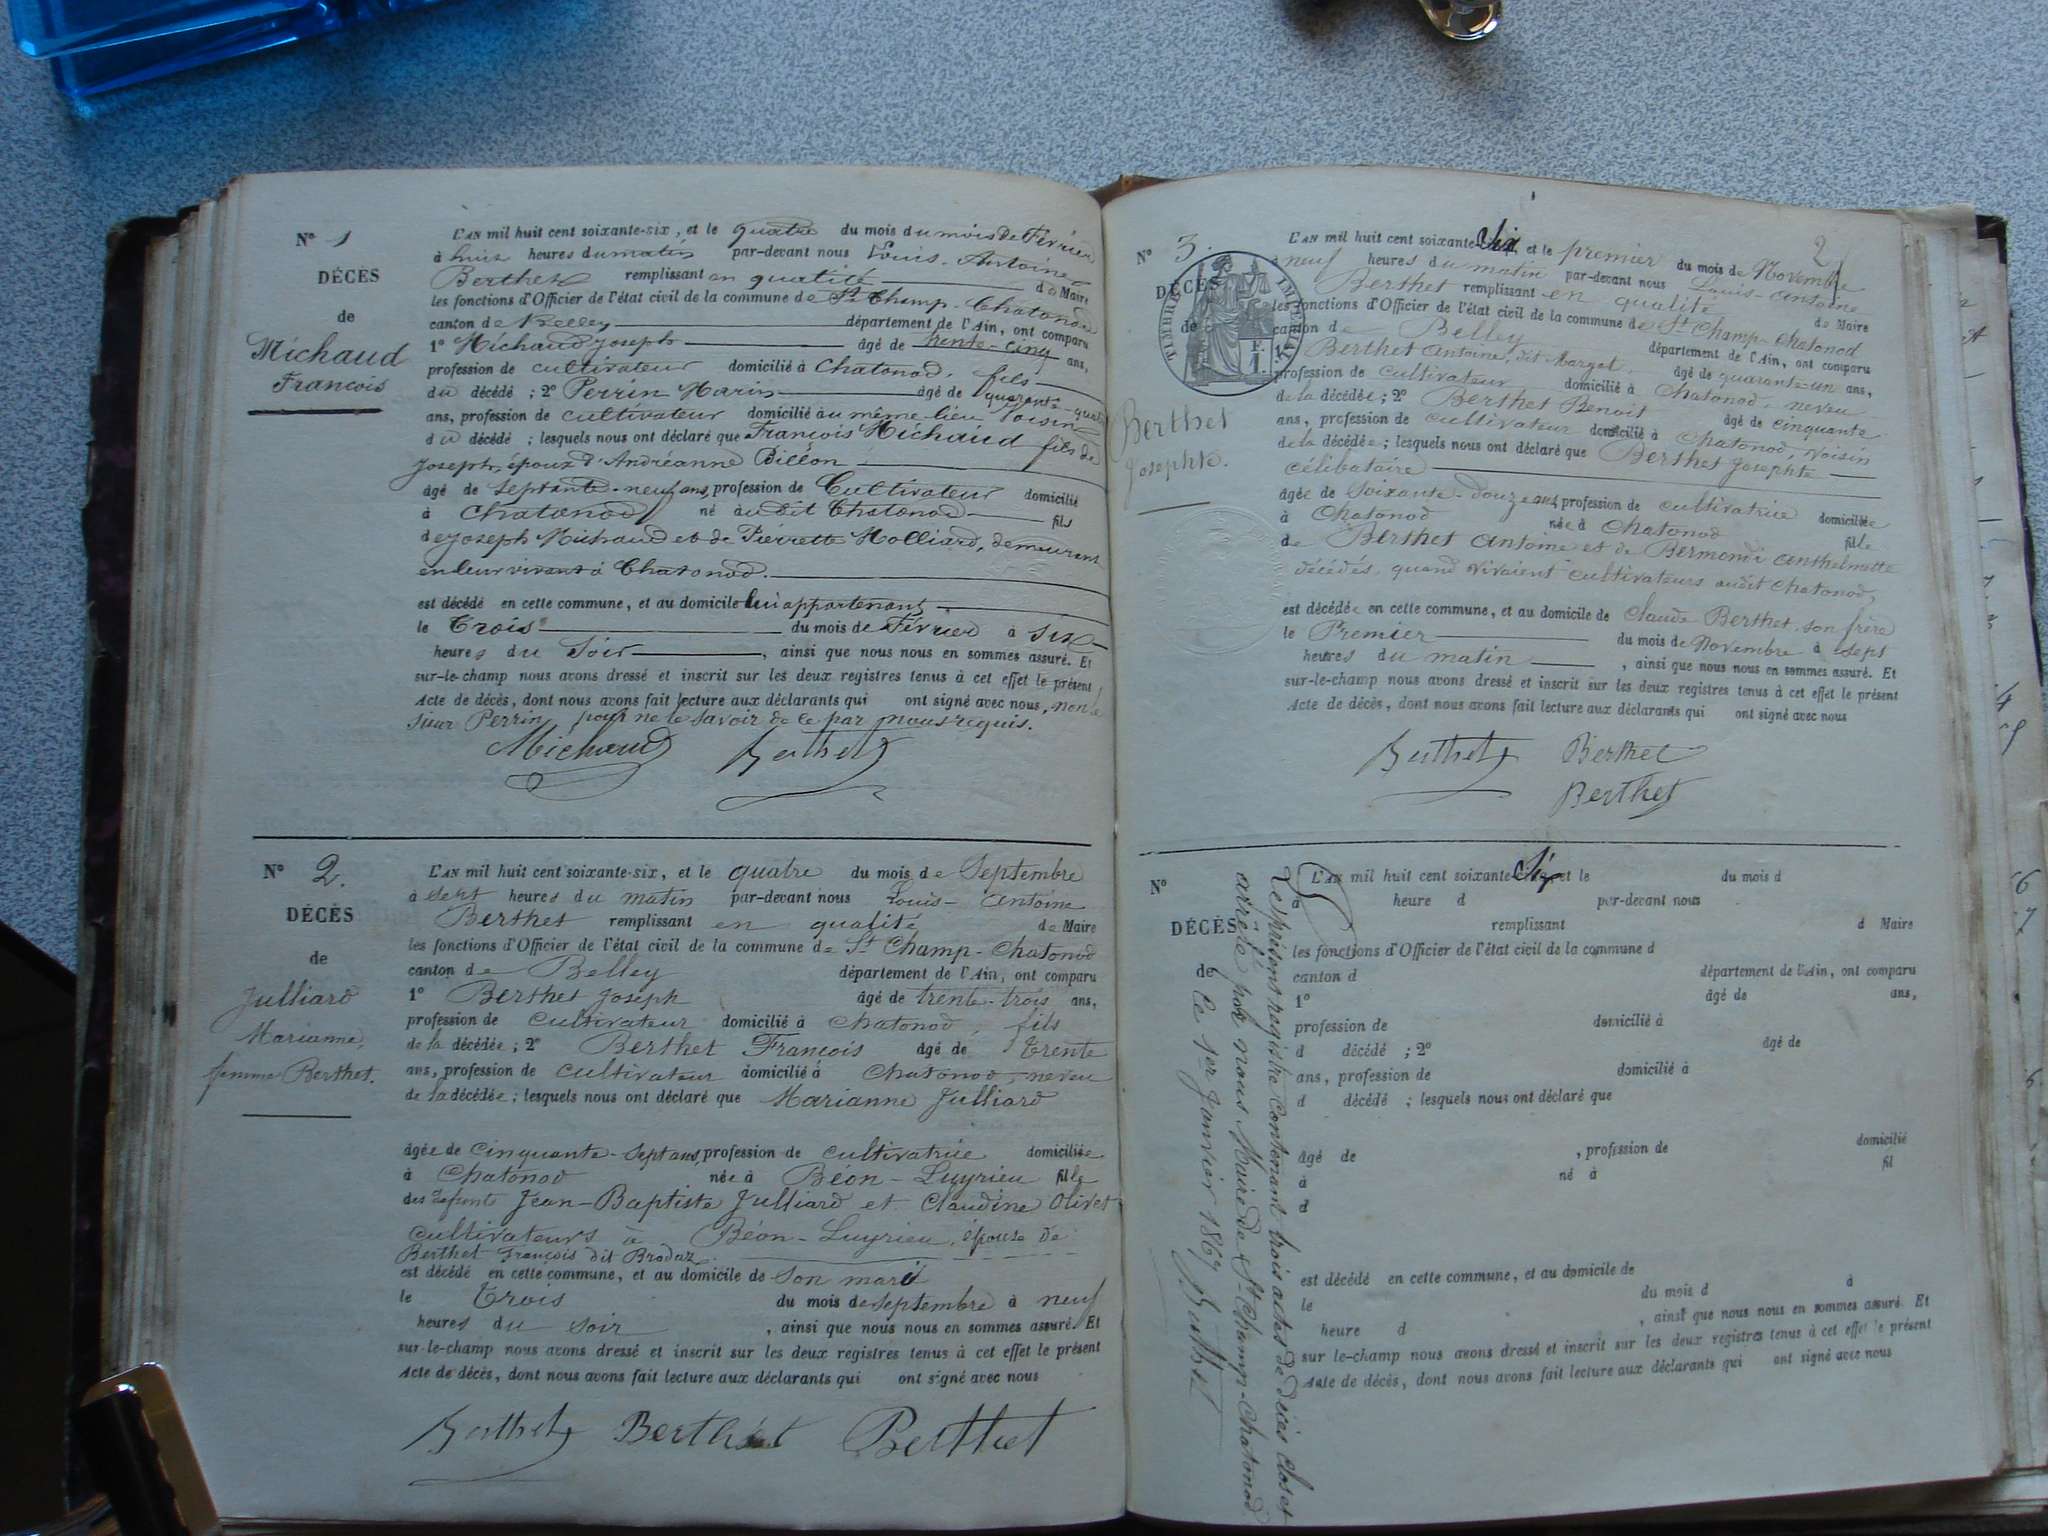 N° 1
DÉCÈS
de
Michaud
François
L'AN mil huit cent soixante-six, et le quatre du mois du mois de Février
à huit heures du matin par-devant nous Louis-Antoine
Berthet remplissant en qualité de Maire
les fonctions d'Officier de l'état civil de la commune de St Champ-Chatonod
canton de Belley département de l'Ain, ont comparu
1° Michaud Joseph âgé de trente-cinq ans,
profession de cultivateur domicilié à Chatonod, fils
du décédé ; 2° Perrin Marin âgé de quarante-quatre
ans, profession de cultivateur domicilié au même lieu voisin
du décédé ; lesquels nous ont déclaré que François Michaud fils de
Joseph, époux d'Andréanne Billon
âgé de septante-neuf ans, profession de Cultivateur domicilié
à Chatonod né au dit Chatonod fils
de Joseph Michaud et de Pierrette Molliard, demeurant
en leur vivant à Chatonod.
est décédé en cette commune, et au domicile lui appartenant
le Trois du mois de Février à six
heures du Soir, ainsi que nous nous en sommes assuré. Et
sur-le-champ nous avons dressé et inscrit sur les deux registres tenus à cet effet le présent
Acte de décès, dont nous avons fait lecture aux déclarants qui ont signé avec nous, non le
sieur Perrin pour ne le savoir de ce par nous requis.
Michaud Berthet
N° 2.
DÉCÈS
de
Julliard
Marianne,
femme Berthet.
L'AN mil huit cent soixante-six, et le quatre du mois de Septembre
à sept heures du matin par-devant nous Louis-Antoine
Berthet remplissant en qualité de Maire
les fonctions d'Officier de l'état civil de la commune de St Champ-Chatonod
canton de Belley département de l'Ain, ont comparu
1° Berthet Joseph âgé de trente-trois ans,
profession de cultivateur domicilié à Chatonod, fils
de la décédée ; 2° Berthet François âgé de trente
ans, profession de cultivateur domicilié à Chatonod, neveu
de la décédée ; lesquels nous ont déclaré que Marianne Julliard
âgée de cinquante-sept ans, profession de cultivatrice domiciliée
à Chatonod née à Béon-Luyrieu fille
des defunts Jean-Baptiste Julliard et Claudine Olivet
cultivateurs à Béon-Luyrieu, épouse de
Berthet François dit Brodaz
est décédé en cette commune, et au domicile de son mari
le Trois du mois de septembre à neuf
heures du soir, ainsi que nous nous en sommes assuré. Et
sur-le-champ nous avons dressé et inscrit sur les deux registres tenus à cet effet le présent
Acte de décès, dont nous avons fait lecture aux déclarants qui ont signé avec nous
Berthet Berthet Berthet
2
N° 3.
DÉCÈS
de
TIMBRE IMPERIAL
1 F.
Berthet
Josephte.
L'AN mil huit cent soixante-Six et le premier du mois de Novembre
à neuf heures du matin par-devant nous Louis-Antoine
Berthet remplissant en qualité de Maire
les fonctions d'Officier de l'état civil de la commune de St Champ-Chatonod
canton de Belley département de l'Ain, ont comparu
Berthet Antoine, dit Margot, âgé de quarante-un ans,
profession de cultivateur domicilié à Chatonod, neveu
de la décédée ; 2° Berthet Benoit âgé de cinquante
ans, profession de cultivateur domicilié à Chatonod, voisin
de la décédée ; lesquels nous ont déclaré que Berthet Josephte
célibataire
âgée de soixante-douze ans, profession de cultivatrice domiciliée
à Chatonod née à Chatonod fille
de Berthet Antoine et de Bermond Anthelmette
décédés, quand vivaient cultivateurs audit Chatonod,
est décédée en cette commune, et au domicile de Claude Berthet son frère
le Premier du mois de Novembre à sept
heures du matin, ainsi que nous nous en sommes assuré. Et
sur-le-champ nous avons dressé et inscrit sur les deux registres tenus à cet effet le présent
Acte de décès, dont nous avons fait lecture aux déclarants qui ont signé avec nous
Berthet Berthet
Berthet
N°
DÉCÈS
de
L'AN mil huit cent soixante-Six et le du mois d
heure d par-devant nous
remplissant d Maire
les fonctions d'Officier de l'état civil de la commune d
canton d département de l'Ain, ont comparu
1° âgé de ans,
profession de domicilié à
d décédé ; 2° âgé de
ans, profession de domicilié à
d décédé ; lesquels nous ont déclaré que
âgé de , profession de domicilié
à né à fil
d
est décédé en cette commune, et au domicile de
le du mois d à
heure d , ainsi que nous nous en sommes assuré. Et
sur le-champ nous avons dressé et inscrit sur les deux registres tenus à cet effet le présent
Acte de décès, dont nous avons fait lecture aux déclarants qui ont signé avec nous
Le présent registre contenant trois actes de décès clos et
arrêté par nous Maire de St Champ-Chatonod
le 1er Janvier 1867
Berthet